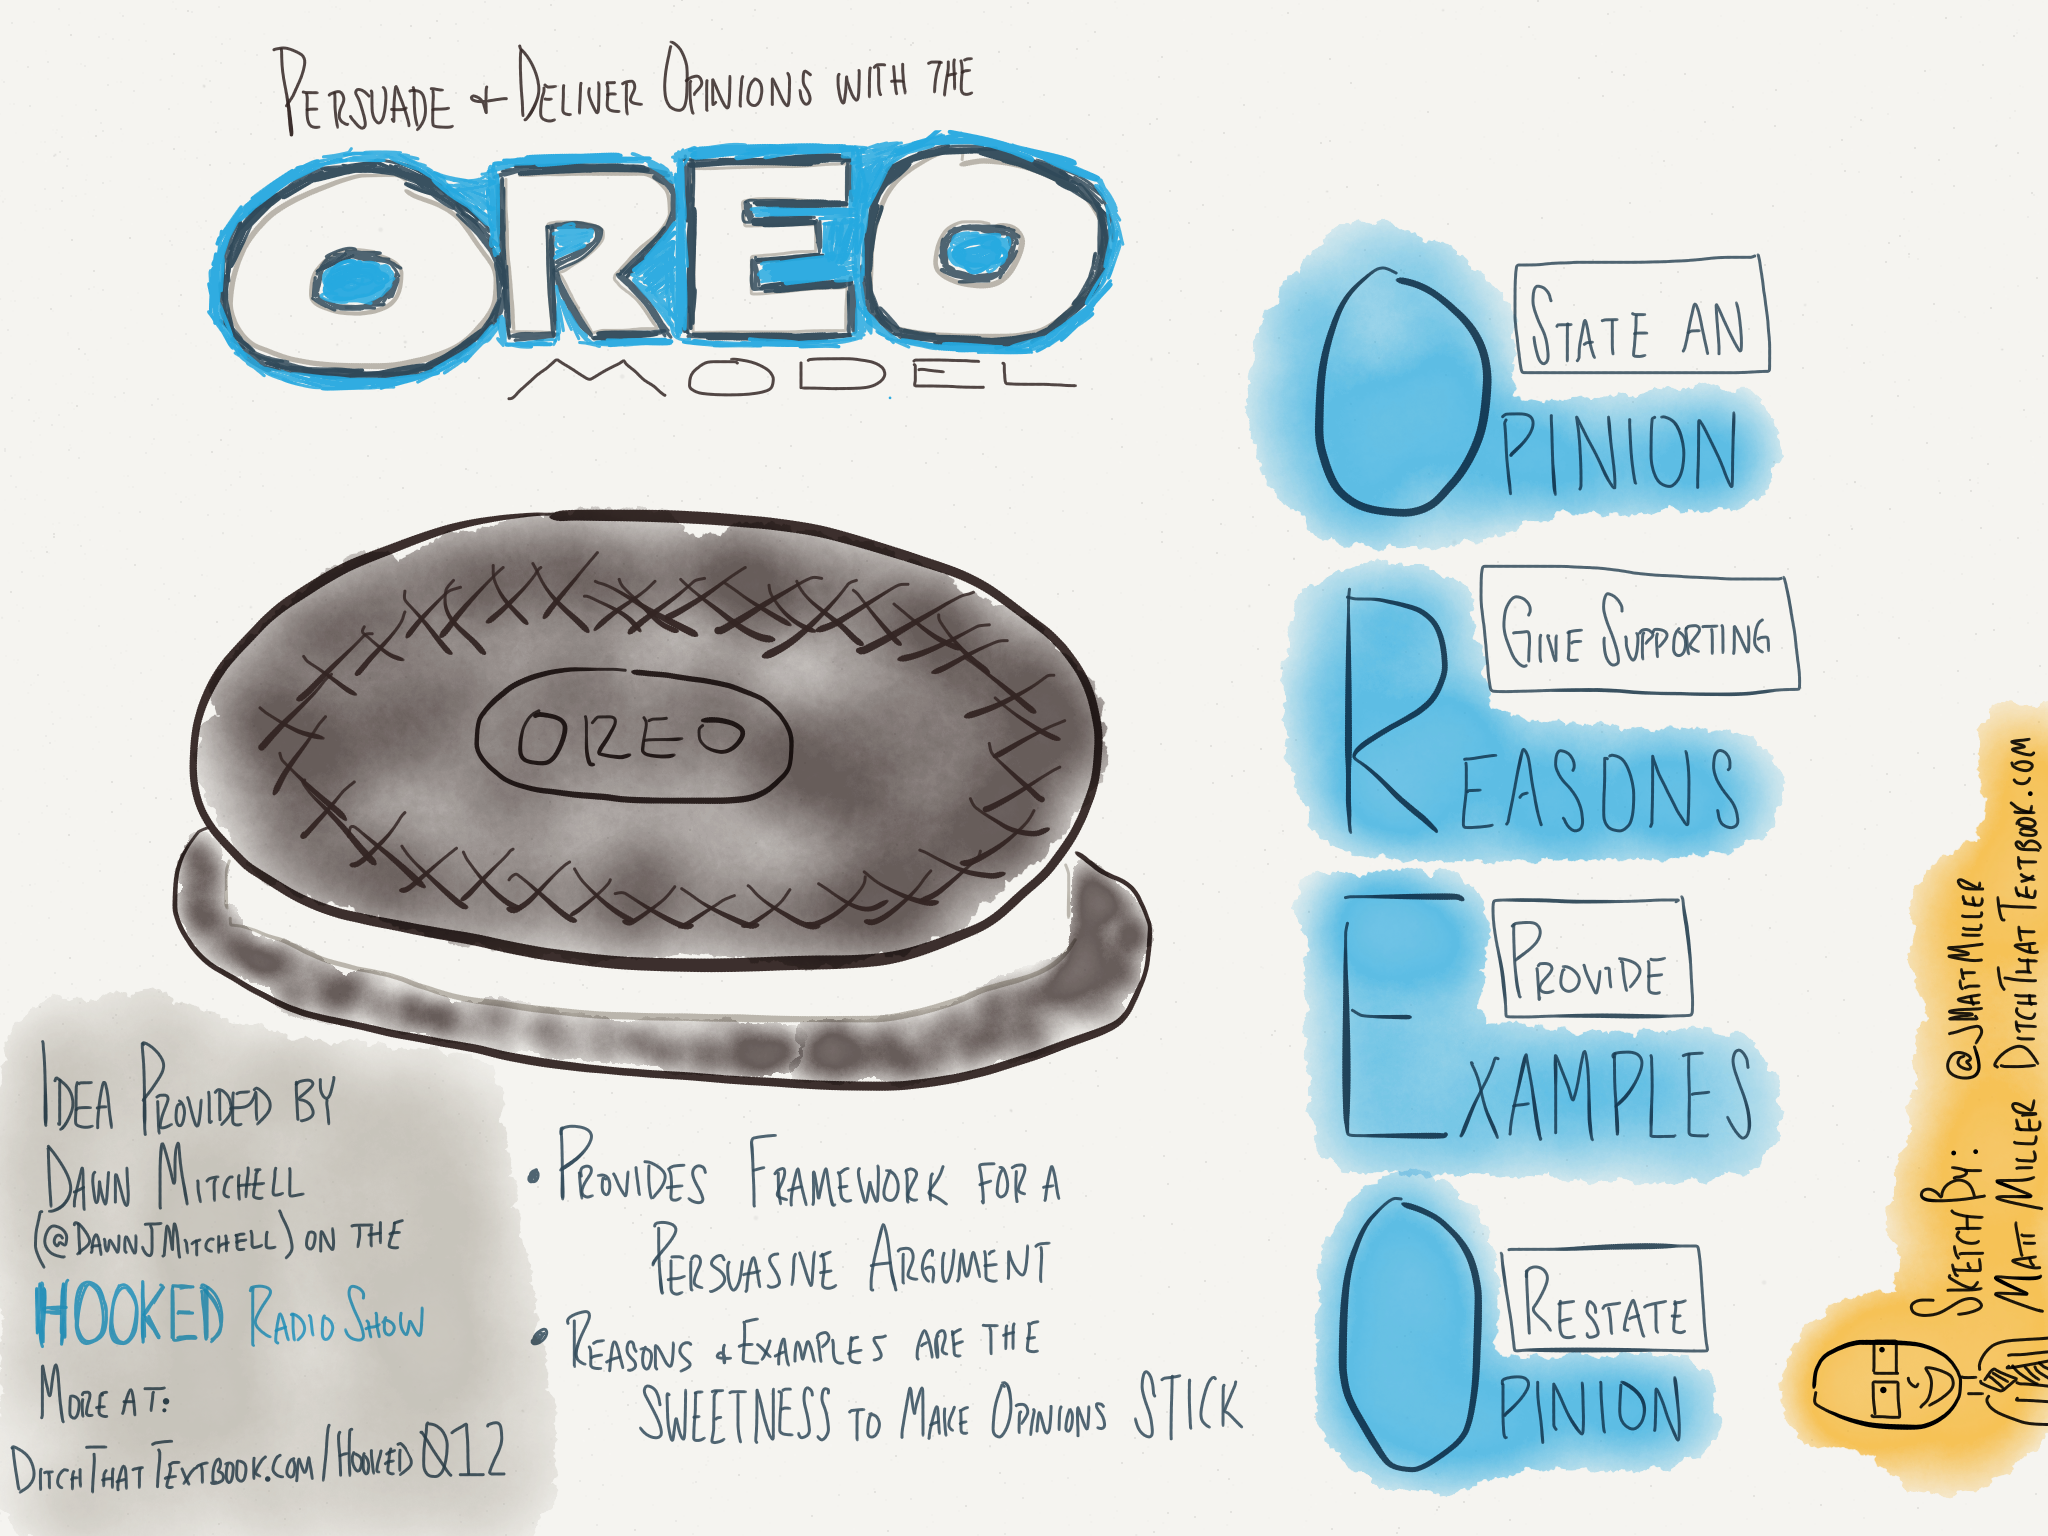 Persuade + Deliver Opinions with the
OREO
MODEL
OREO
State an
Opinion
Give Supporting
Reasons
Provide
Examples
Restate
Opinion
Idea Provided by
Dawn Mitchell
(@DawnJMitchell) on the
HOOKED Radio Show
More at:
DitchThatTextbook.com/Hooked012
• Provides Framework for a
Persuasive Argument
• Reasons + Examples are the
SWEETNESS to Make Opinions STICK
Sketch By: @JMattMiller
Matt Miller DitchThatTextbook.com